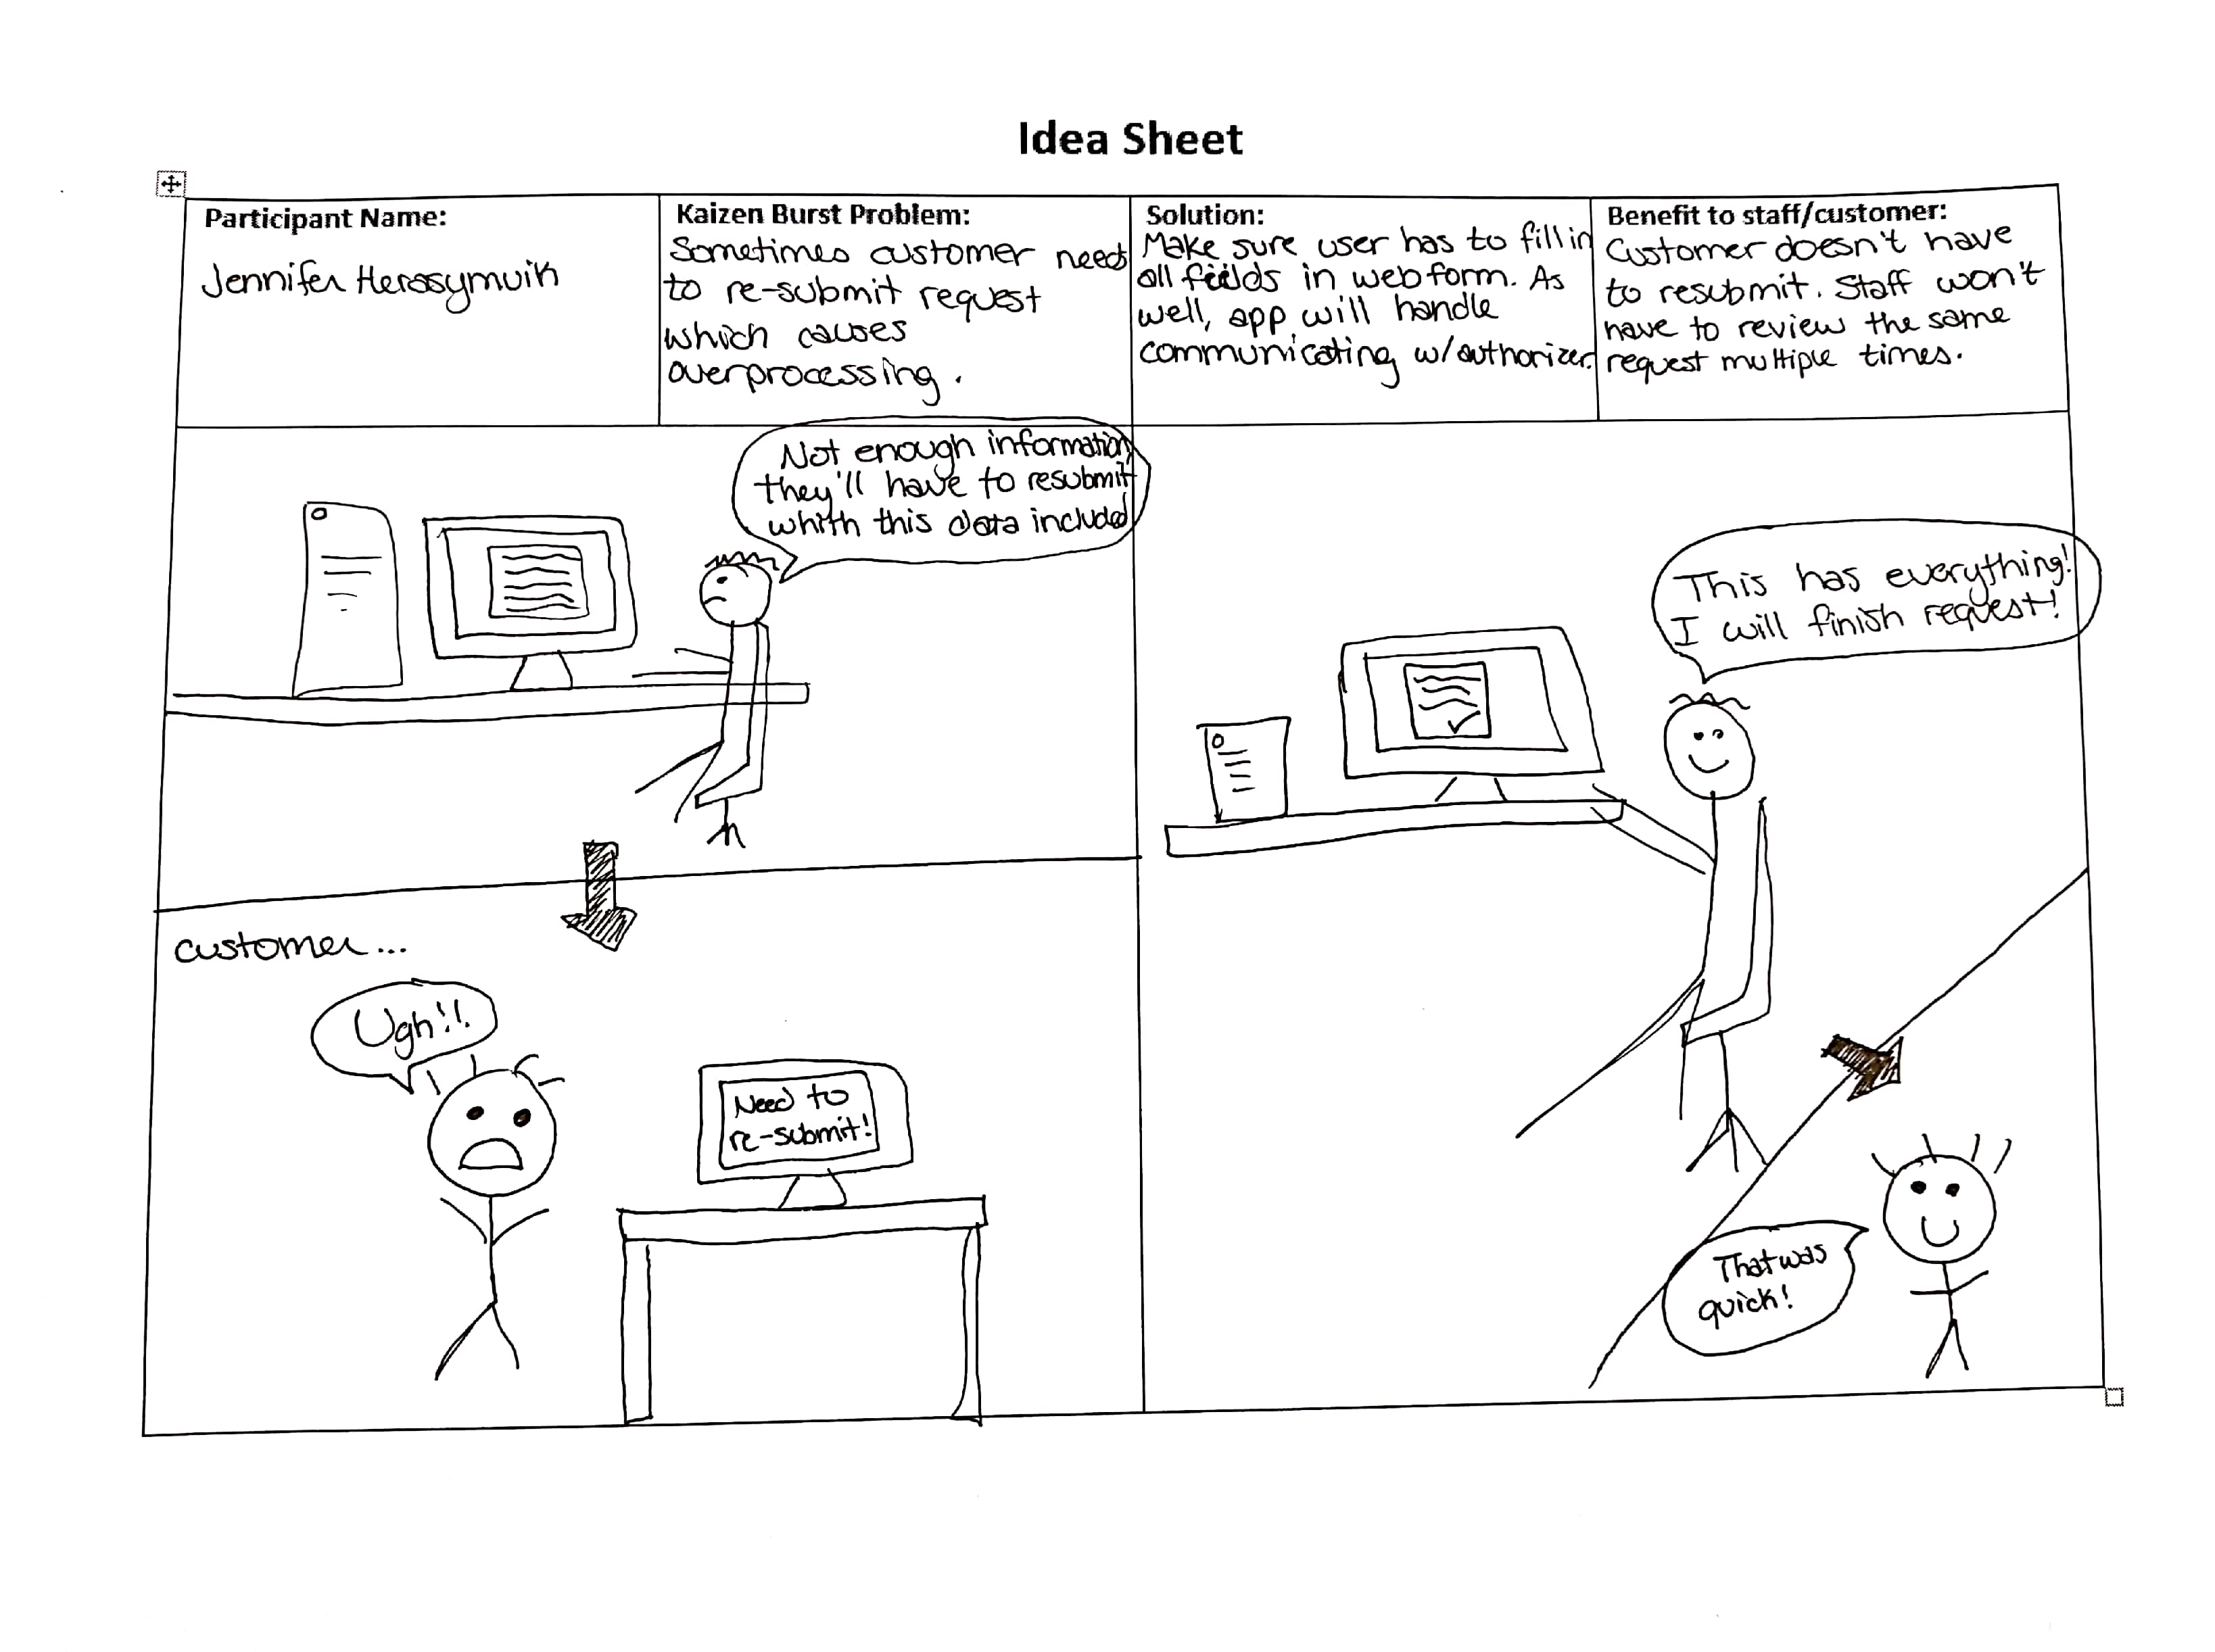 Idea Sheet
Participant Name:
Jennifer Herasymuik
Kaizen Burst Problem:
Sometimes customer needs
to re-submit request
which causes
overprocessing.
Solution:
Make sure user has to fill in
all fields in webform. As
well, app will handle
communicating w/authorizer.
Benefit to staff/customer:
Customer doesn't have
to resubmit. Staff won't
have to review the same
request multiple times.
Not enough information
they'll have to resubmit
whith this data included
This has everything!
I will finish request!
customer...
Ugh!!
Need to
re-submit!
That was
quick!